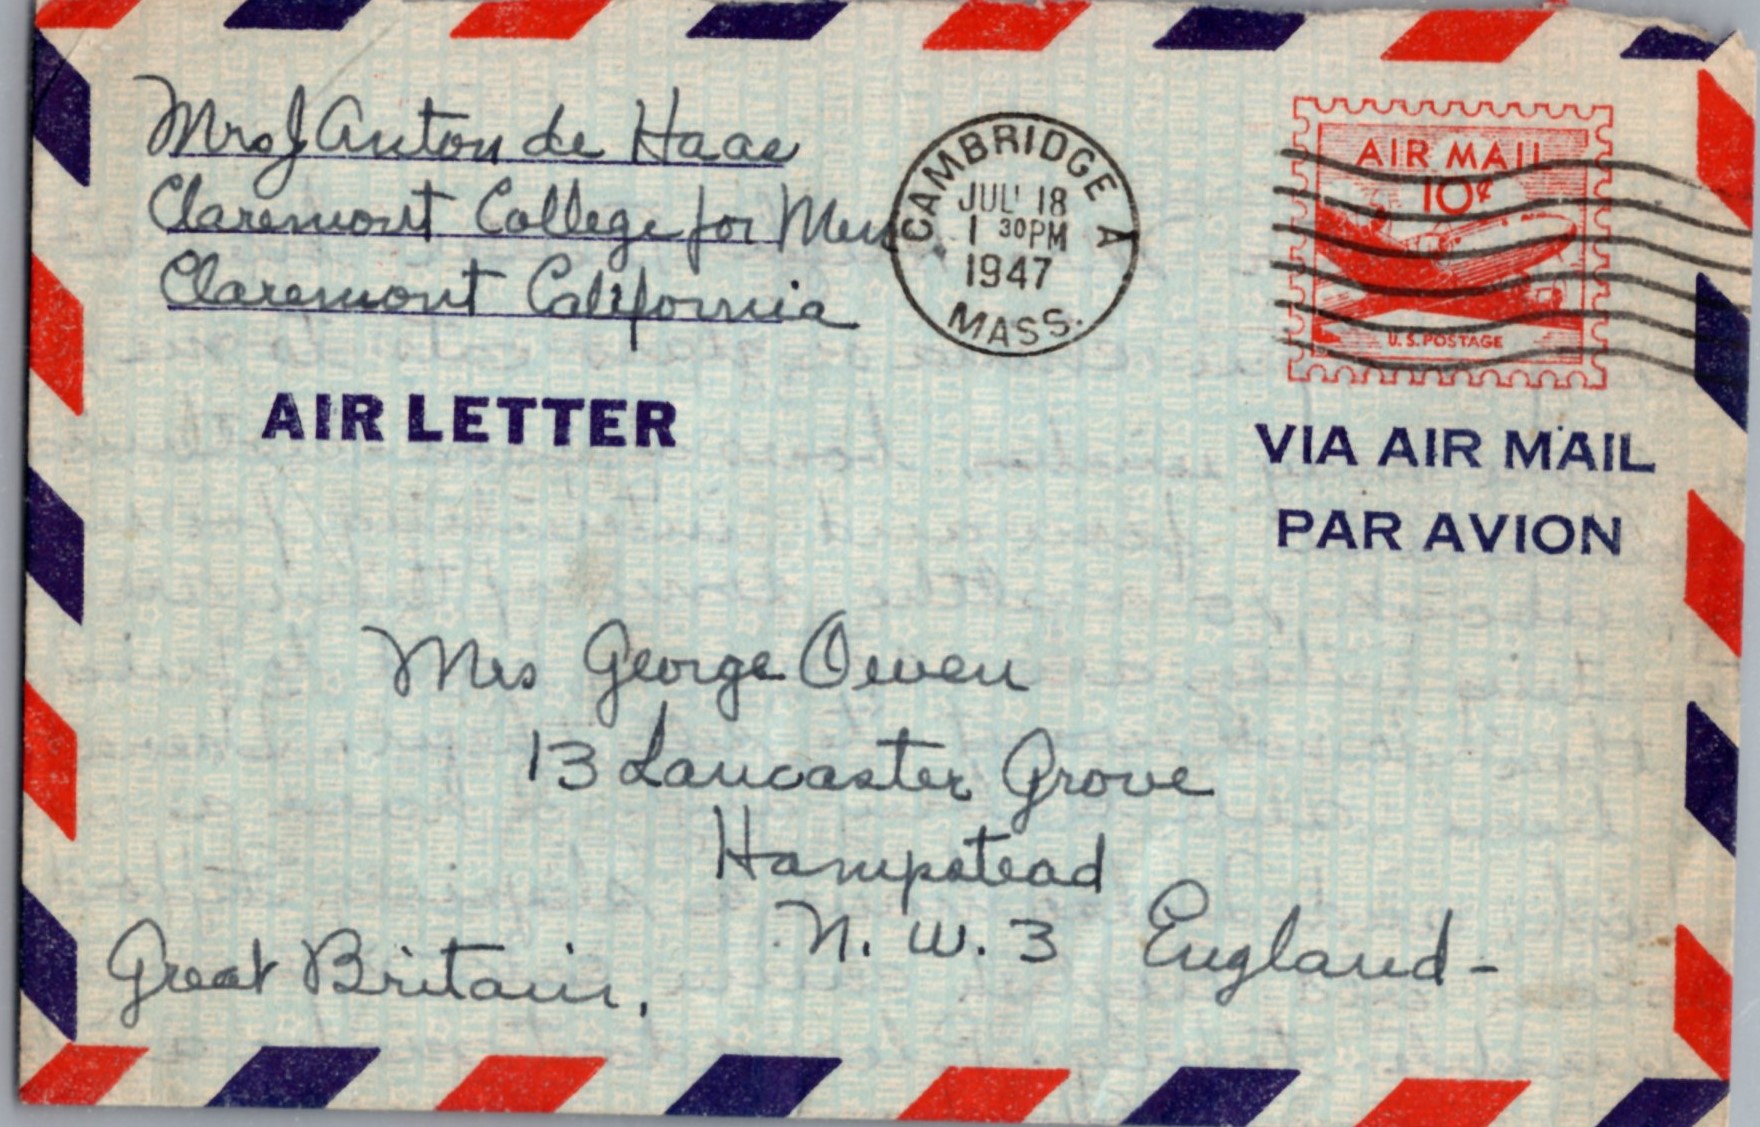 Mrs J Anton de Haas
Claremont College for Men
Claremont California
CAMBRIDGE A
JUL 18
1 30PM
1947
MASS.
AIR MAIL
10¢
U.S. POSTAGE
AIR LETTER
VIA AIR MAIL
PAR AVION
Mrs George Owen
13 Lancaster Grove
Hampstead
N. W. 3 England -
Great Britain.